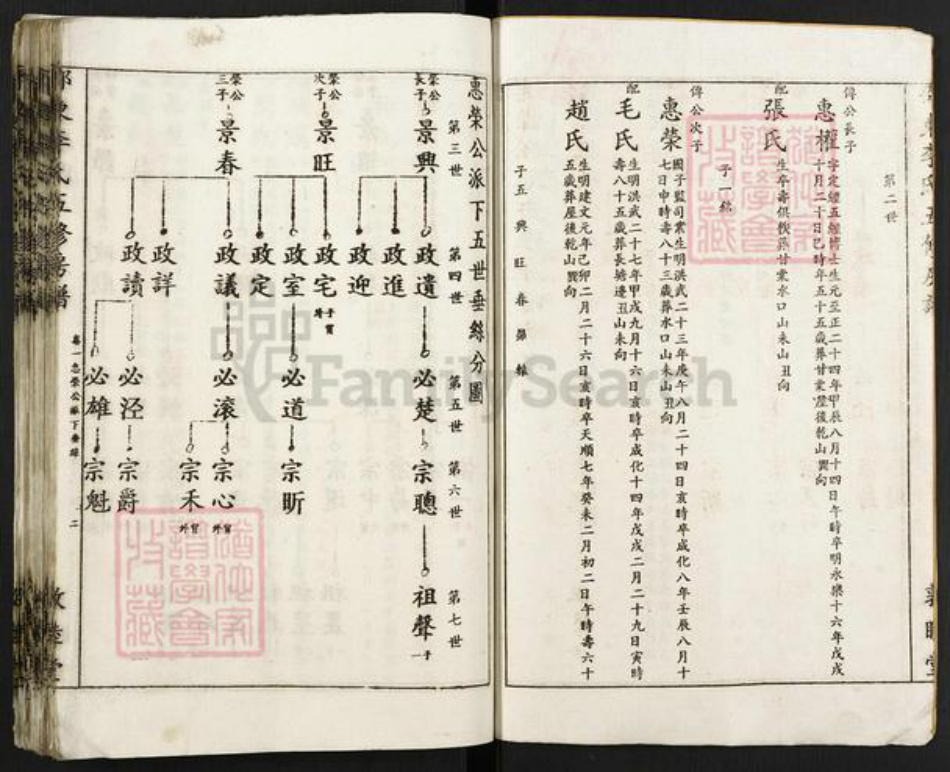 第二世
俾公長子
惠權
字定經五經博士生元至正二十四年甲辰八月十四日午時卒明永樂十六年戊戌
十月二十日巳時年五十五歲葬甘棠屋後乾山巽向
配
張氏
生卒壽俱佚葬甘棠水口山未山丑向
子一
俾公次子
惠榮
國子監司業生明洪武二十三年庚午八月二十四日亥時卒成化八年壬辰八月十
七日申時壽八十三歲葬水口山未山丑向
配
毛氏
生明洪武二十七年甲戌九月十六日亥時卒成化十四年戊戌二月二十九日寅時
壽八十五歲葬長塘邊丑山未向
趙氏
生明建文元年己卯二月二十六日亥時卒天順七年癸未二月初二日午時壽六十
五歲葬屋後乾山巽向
子五 興 旺 春
惠榮公派下五世垂絲分圖
第三世
第四世
第五世
第六世
第七世
榮公長子
景興
政遺
必楚
宗聰
祖聲
子一
政進
政迎
榮公次子
景旺
政宅
政室
必道
宗昕
政定
榮公三子
景春
政議
必滚
宗心
宗禾
政詳
政讀
必涇
宗爵
必雄
宗魁
卷一惠榮公派下垂絲
二
FamilySearch